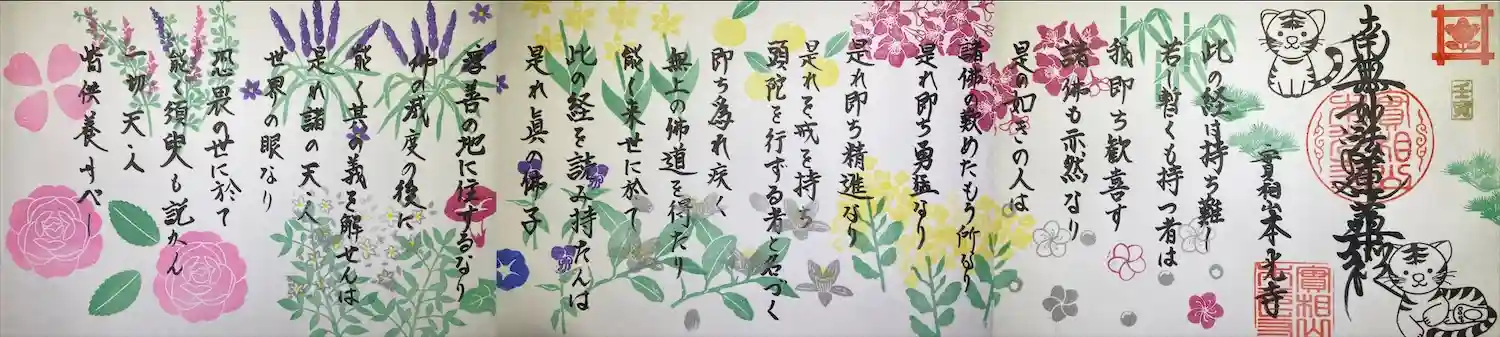 南無妙法蓮華経
壬寅
實相山本光寺
此の経は持ち難し
若し暫くも持つ者は
我即ち歓喜す
諸佛も亦然なり
是の如きの人は
諸佛の歎めたもう所なり
是れ即ち勇猛なり
是れ即ち精進なり
是れを戒を持ち
頭陀を行ずる者と名づく
即ち為れ疾く
無上の佛道を得たり
能く来世に於て
此の経を読み持たんは
是れ眞の佛子
淳善の地に住するなり
佛の滅度の後に
能く其の義を解せんは
是れ諸の天・人
世界の眼なり
恐畏の世に於て
能く須臾も説かん
一切天・人
皆供養すべし